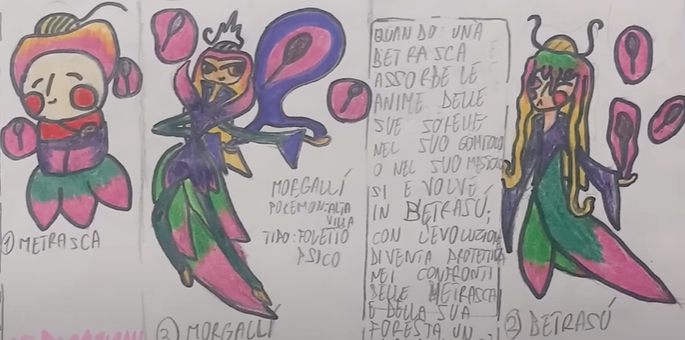 ① METRASCA
MORGALLÍ
POKEMON: ALTA
VILLA
TIPO: FOLETTO
PSICO
③ MORGALLÍ
QUANDO UNA
BETRASCA
ASSORBE LE
ANIME DELLE
SUE
NEL SUO GOMITOLO
O NEL SUO
SI E VOLVE
IN BETRASÚ,
CON L'EVOLUZIONE
DIVENTA PROTETTIVA
NEI CONFRONTI
DELLE METRASCA
E DELLA SUA
FORESTA UN
② BETRASÚ